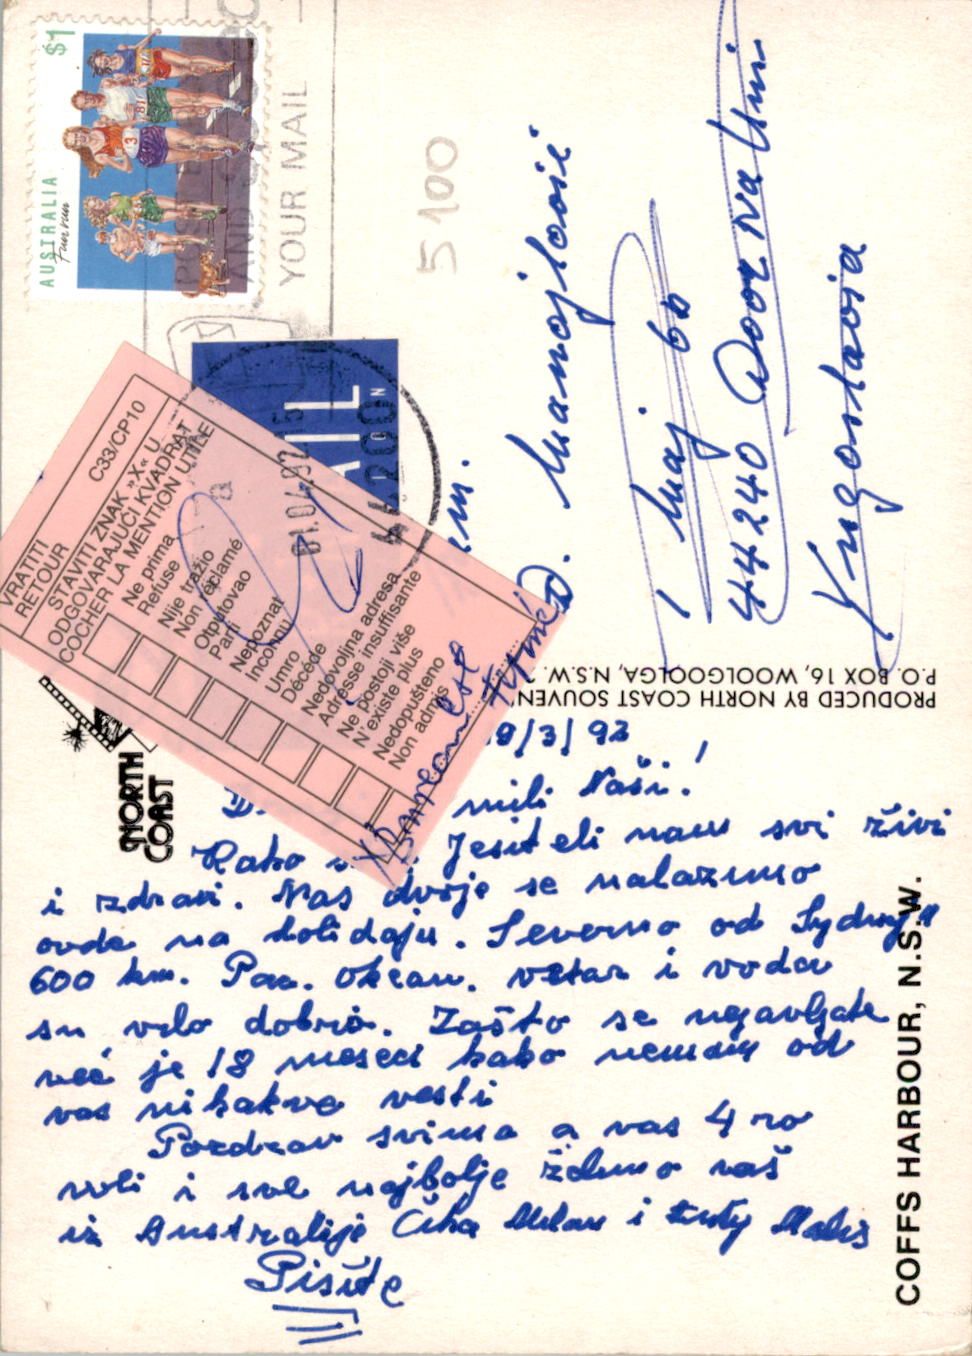 $1
AUSTRALIA
Fun run
YOUR MAIL
5100
VRATITI
RETOUR
C33/CP10
STAVITI ZNAK »X« U
ODGOVARAJUĆI KVADRAT
COCHER LA MENTION UTILE
Ne prima
Refuse
Nije tražio
Non réclamé
Otputovao
Parti
Nepoznat
Inconnu
Umro
Décédé
Nedovoljna adresa
Adresse insuffisante
Ne postoji više
N'existe plus
Nedopušteno
Non admis
01.04.92
D. Manojlović
1 Maj 60
44240
Yugoslavia
PRODUCED BY NORTH COAST SOUVEN
P.O. BOX 16, WOOLGOOLGA, N.S.W. 2
NORTH
COAST
9/3/92
mili Naši!
Kako Jesiteli nam svi živi
i zdravi. Nas dvoje se nalazimo
ovde na holidaju. Severno od Sydney
600 km. Pac. Okean. vetar i voda
su vrlo dobro. Zašto se nejavljate
već je 18 meseci kako nemam od
vas nikakve vesti
Pozdrav svima a vas 4 ro
voli i sve najbolje želimo vaš
iz Australije Čika Milan i
Pišite
COFFS HARBOUR, N.S.W.